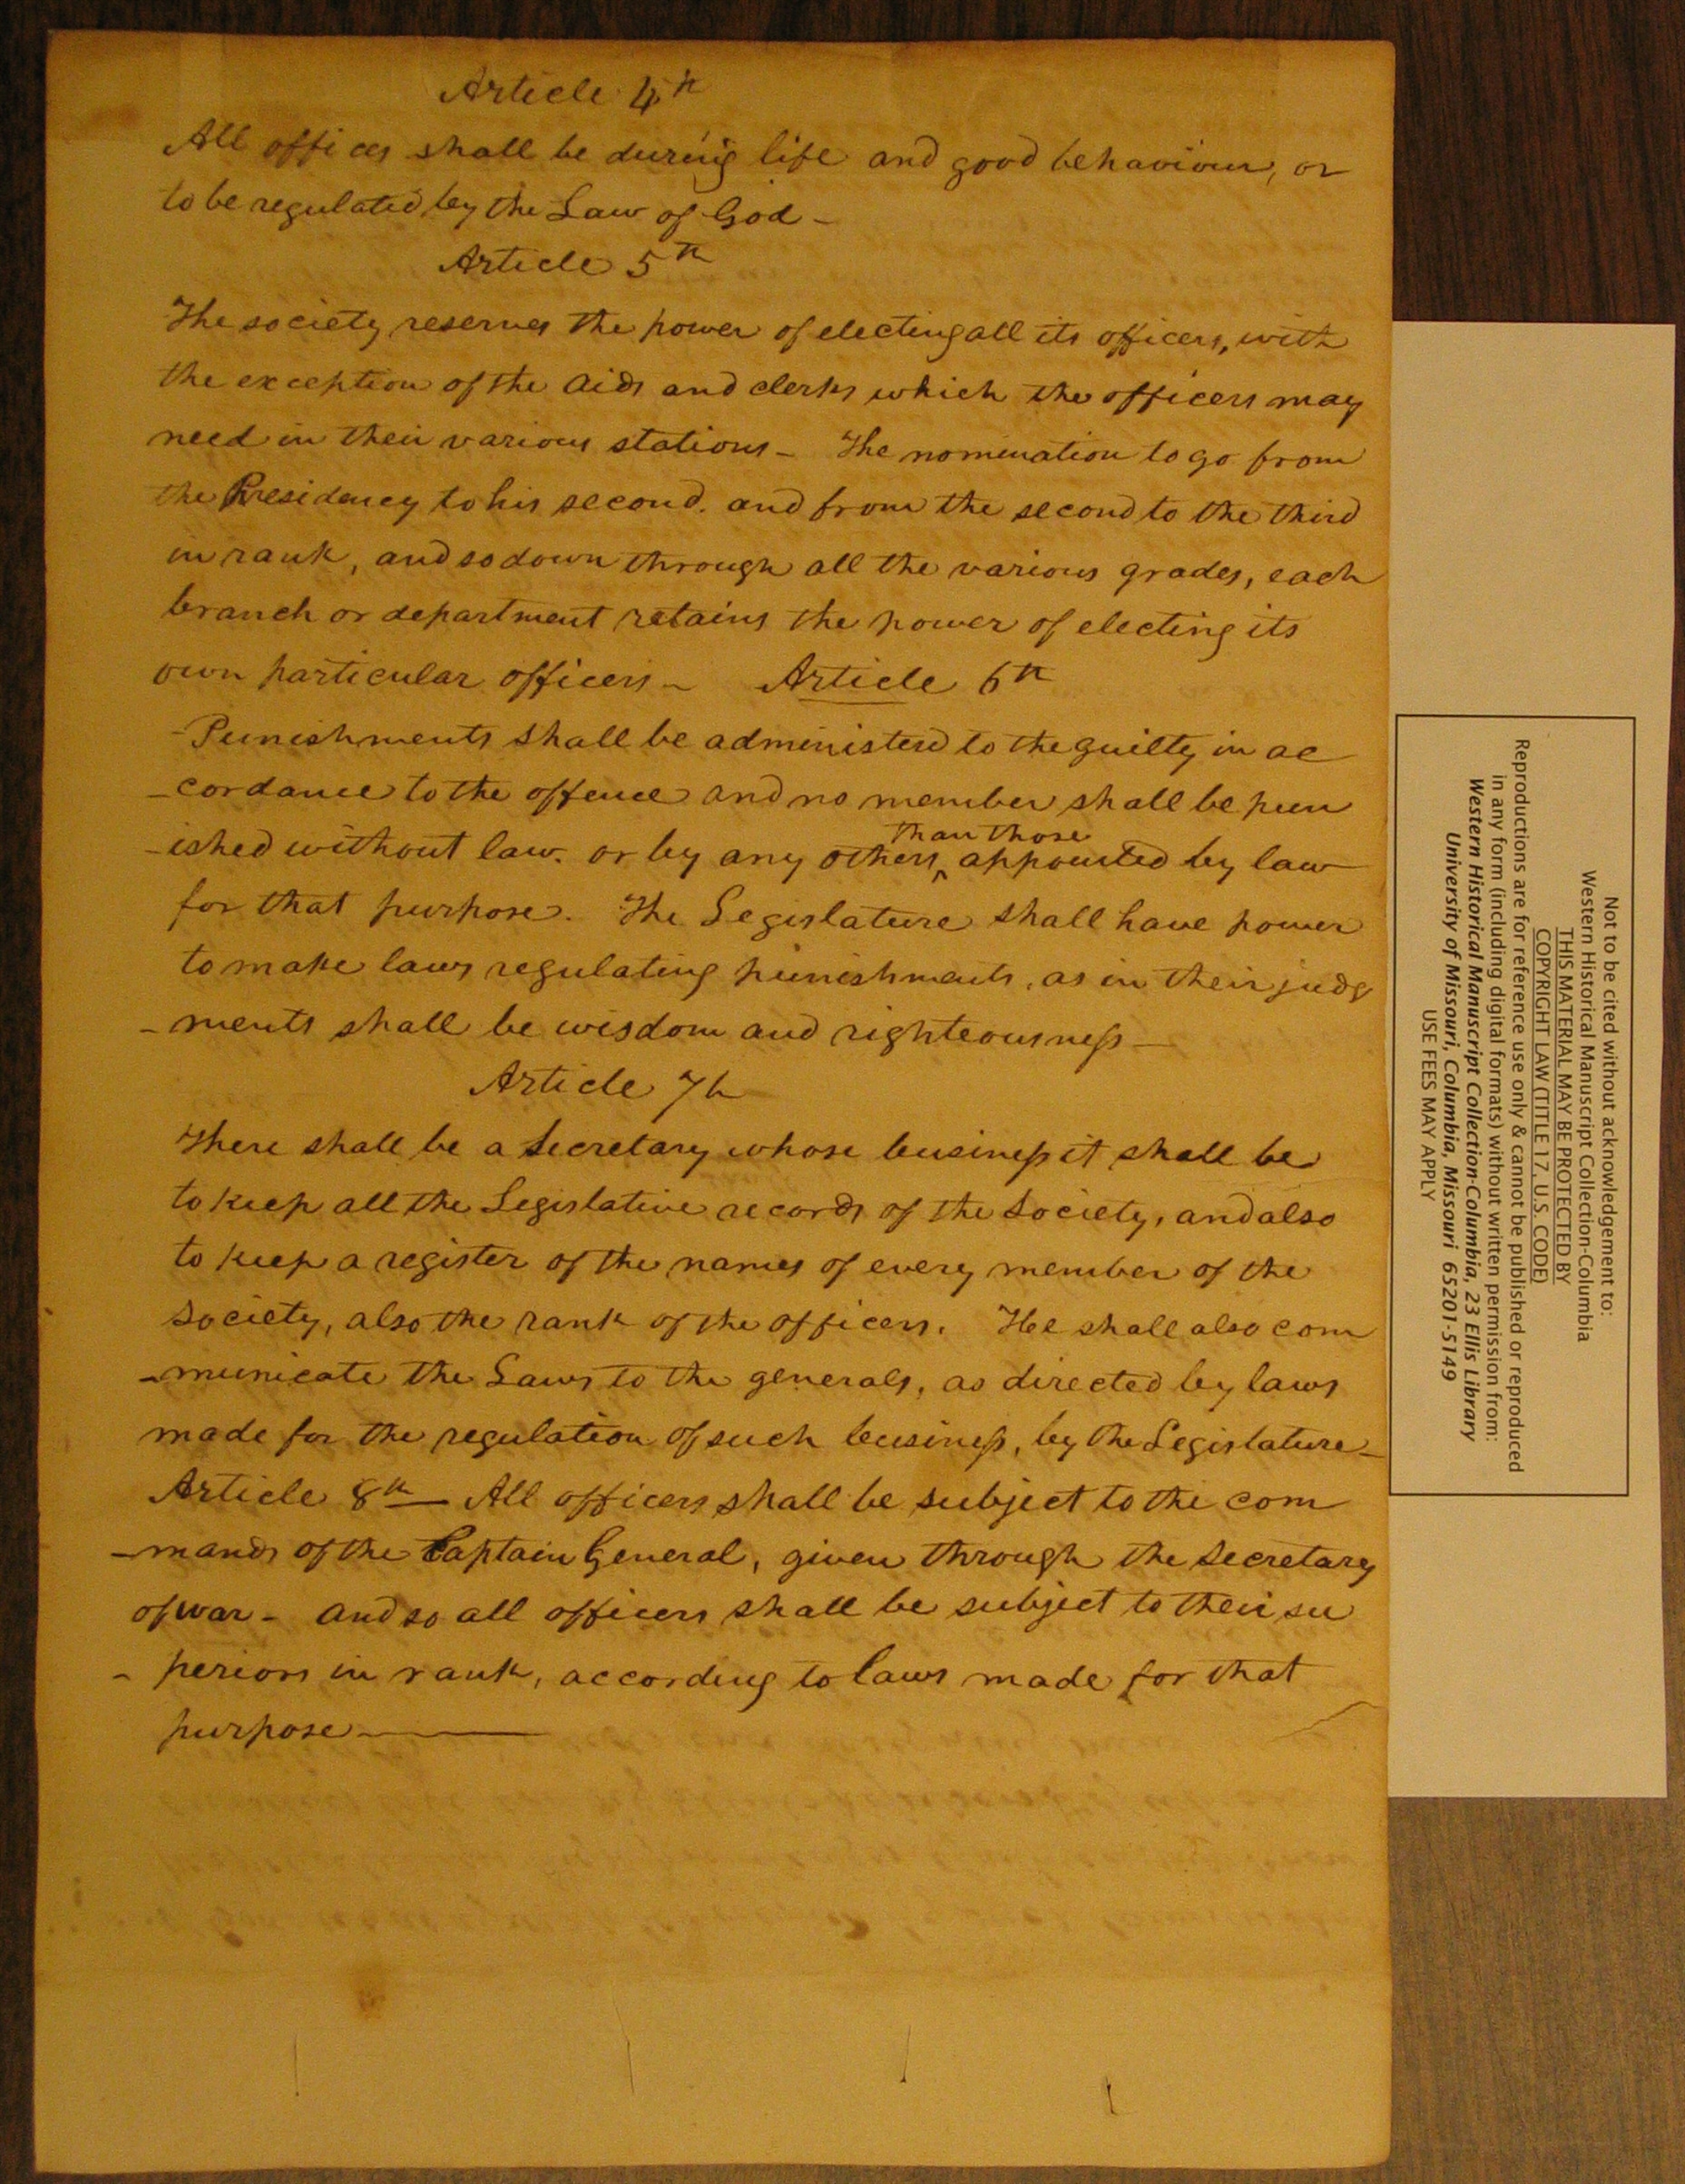 Article 4th
All offices shall be during life and good behaviour, or
to be regulated by the Law of God -
Article 5th
The society reserves the power of electing all its officers, with
the exception of the aids and clerks which the officers may
need in their various stations - The nomination to go from
the Presidency to his second. and from the second to the third
in rank, and so down through all the various grades, each
branch or department retains the power of electing its
own particular officers - Article 6th
Punishments shall be administerd to the guilty in ac
-cordance to the offence and no member shall be pun
-ished without law. or by any others ^ than those appointed by law
for that purpose. The Legislature shall have power
to make laws regulating punishments, as in their judg
-ments shall be wisdom and righteousness -
Article 7h
There shall be a Secretary whose business it shall be
to keep all the Legislative records of the Society, and also
to keep a register of the names of every member of the
Society, also the rank of the officers. He shall also com
-municate the Laws to the generals, as directed by laws
made for the regulation of such business, by the Legislature -
Article 8th - All officers shall be subject to the com
-mands of the Captain General, given through the Secretary
of war - and so all officers shall be subject to their su
-periors in rank, according to laws made for that
purpose -
Not to be cited without acknowledgement to:
Western Historical Manuscript Collection-Columbia
THIS MATERIAL MAY BE PROTECTED BY
COPYRIGHT LAW (TITLE 17, U.S. CODE)
Reproductions are for reference use only & cannot be published or reproduced
in any form (including digital formats) without written permission from:
Western Historical Manuscript Collection-Columbia, 23 Ellis Library
University of Missouri, Columbia, Missouri 65201-5149
USE FEES MAY APPLY